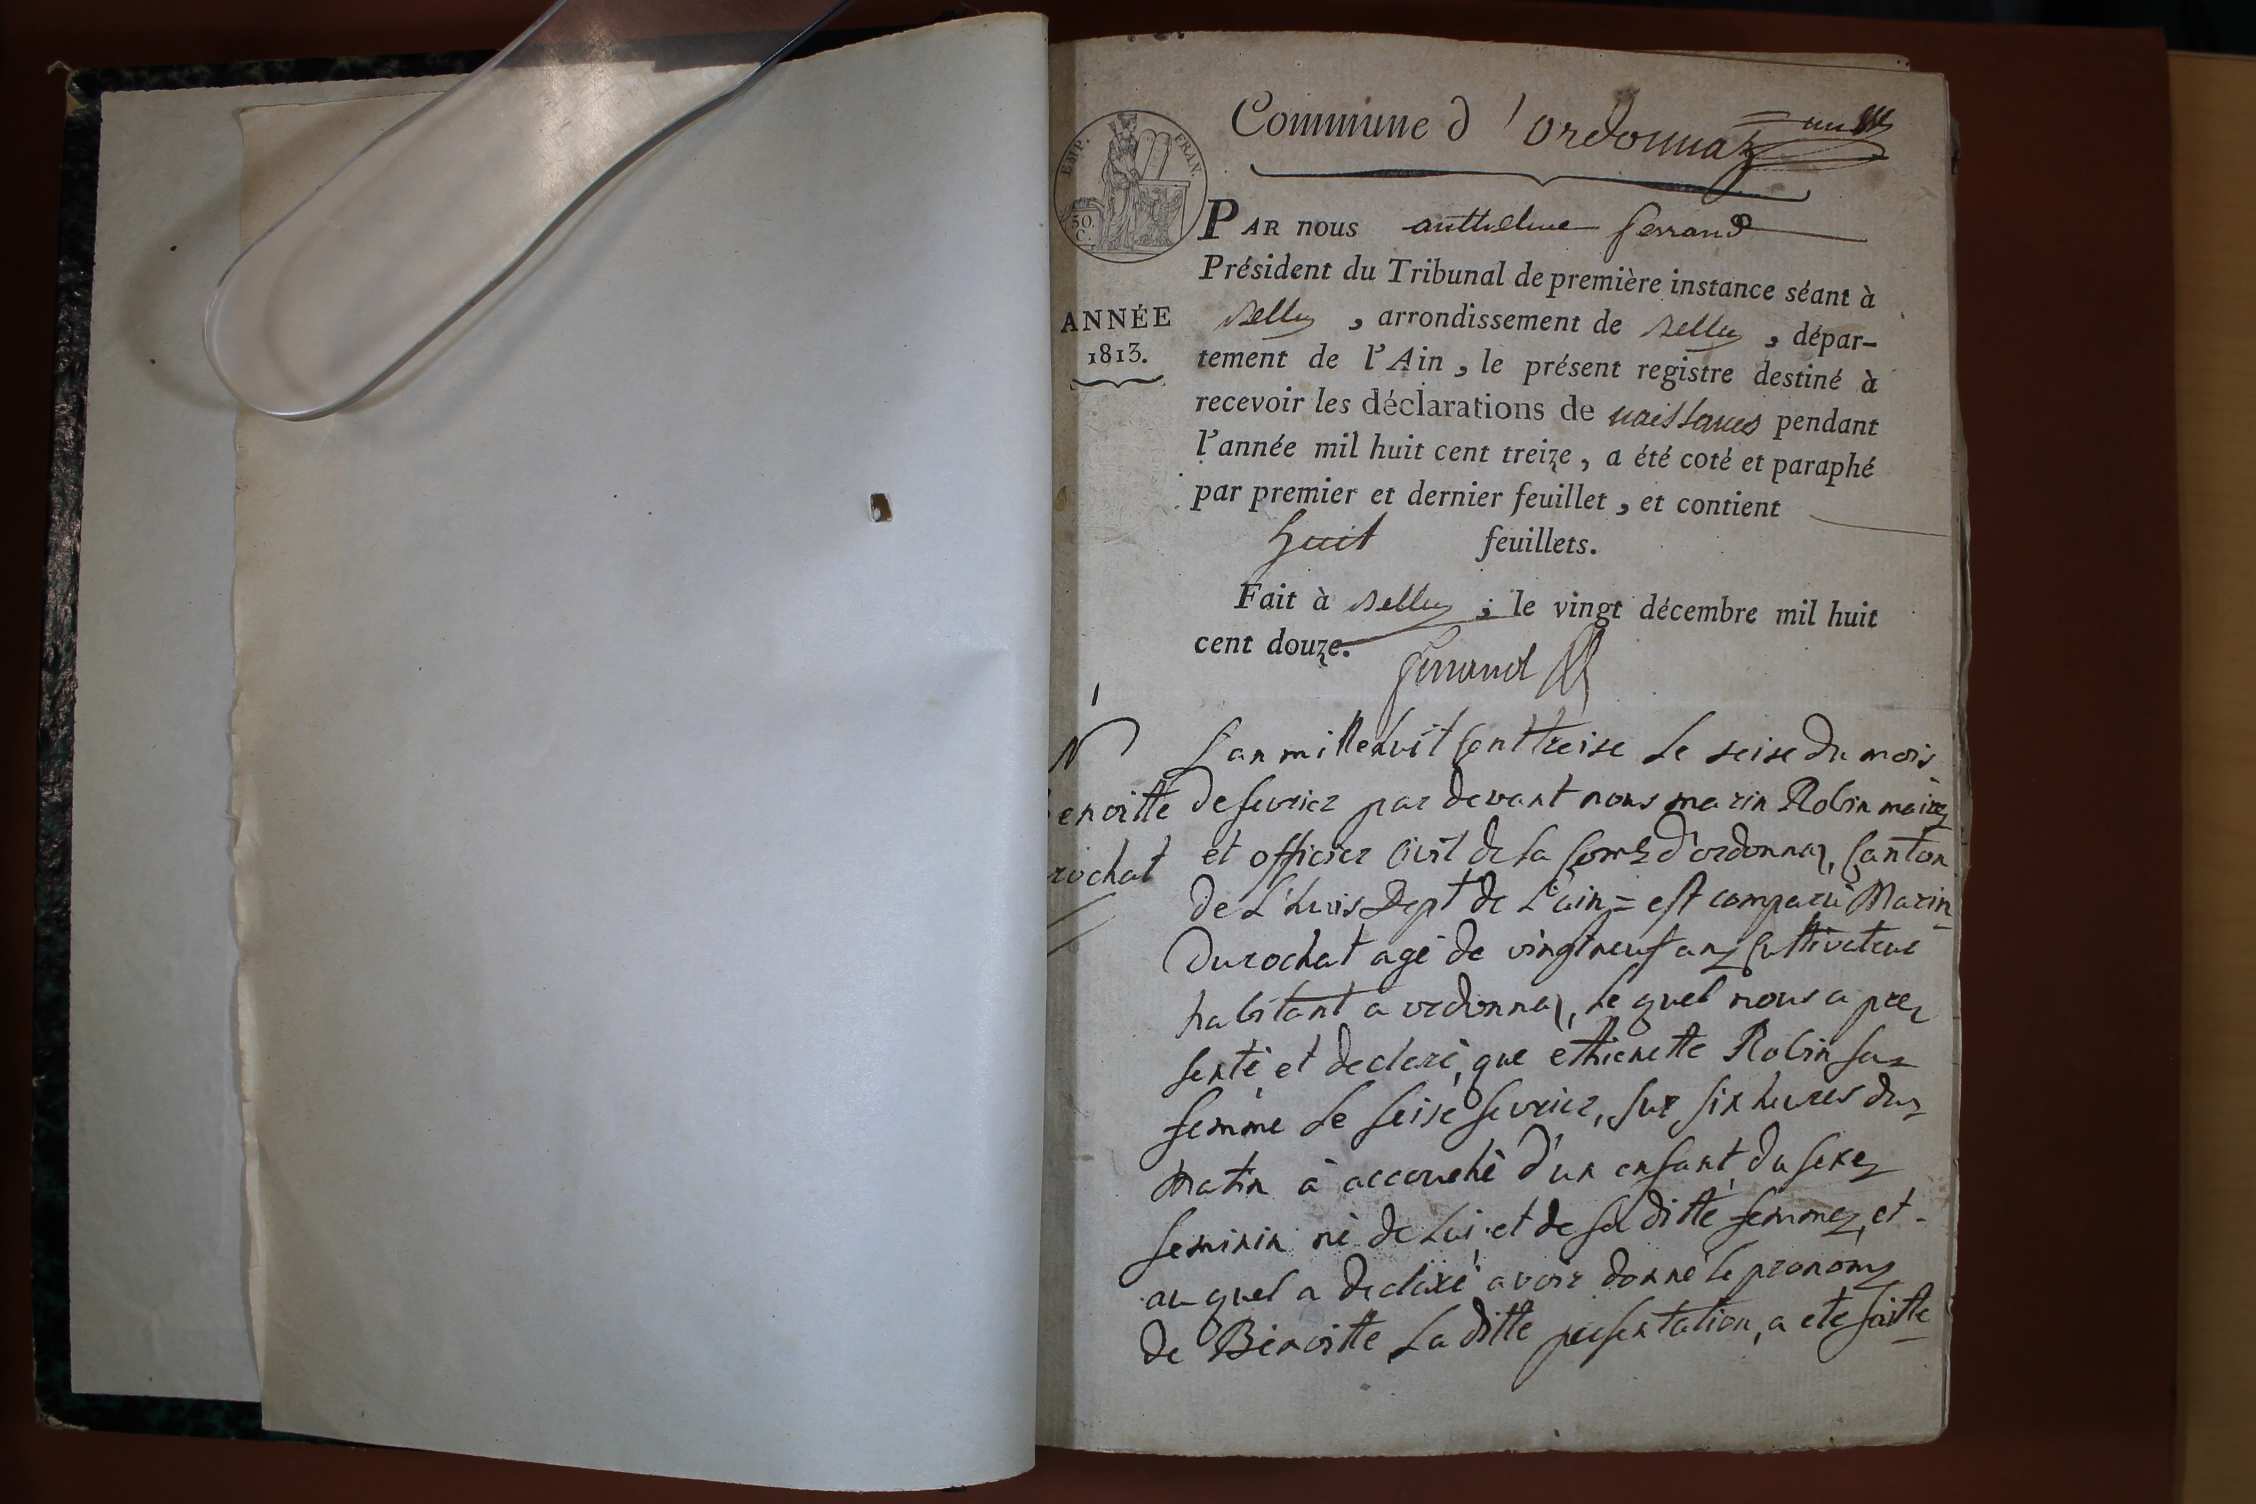 Commune d'ordonnaz un
EMP. FRAN.
50. C.
PAR nous anthelme ferrand
Président du Tribunal de première instance séant à
Belley, arrondissement de Belley, dépar-
tement de l'Ain, le présent registre destiné à
recevoir les déclarations de naissances pendant
l'année mil huit cent treize, a été coté et paraphé
par premier et dernier feuillet, et contient
huit feuillets.
Fait à Belley; le vingt décembre mil huit
cent douze.
ferrand
ANNÉE
1813.
1
N
enoitte
rochat
L'an mille huit cent treise le seise du mois
de fevrier par devant nous marin Robin maire
et officier civil de la com.e d'ordonnaz, canton
de L'huis Dept de L'ain = est comparu Marin
Durochat agé de vingt neuf ans cultivateur
habitant a ordonnaz, le quel nous a pre
senté et declaré, que ethienette Robin sa
femme le seise fevrier, sur six heures du
matin à accouché d'un enfant du sexe
feminin né de Lui et de sa ditte femme, et
au quel a declaré avoir donné le pronom
de Bénoitte La ditte presentation, a eté faitte